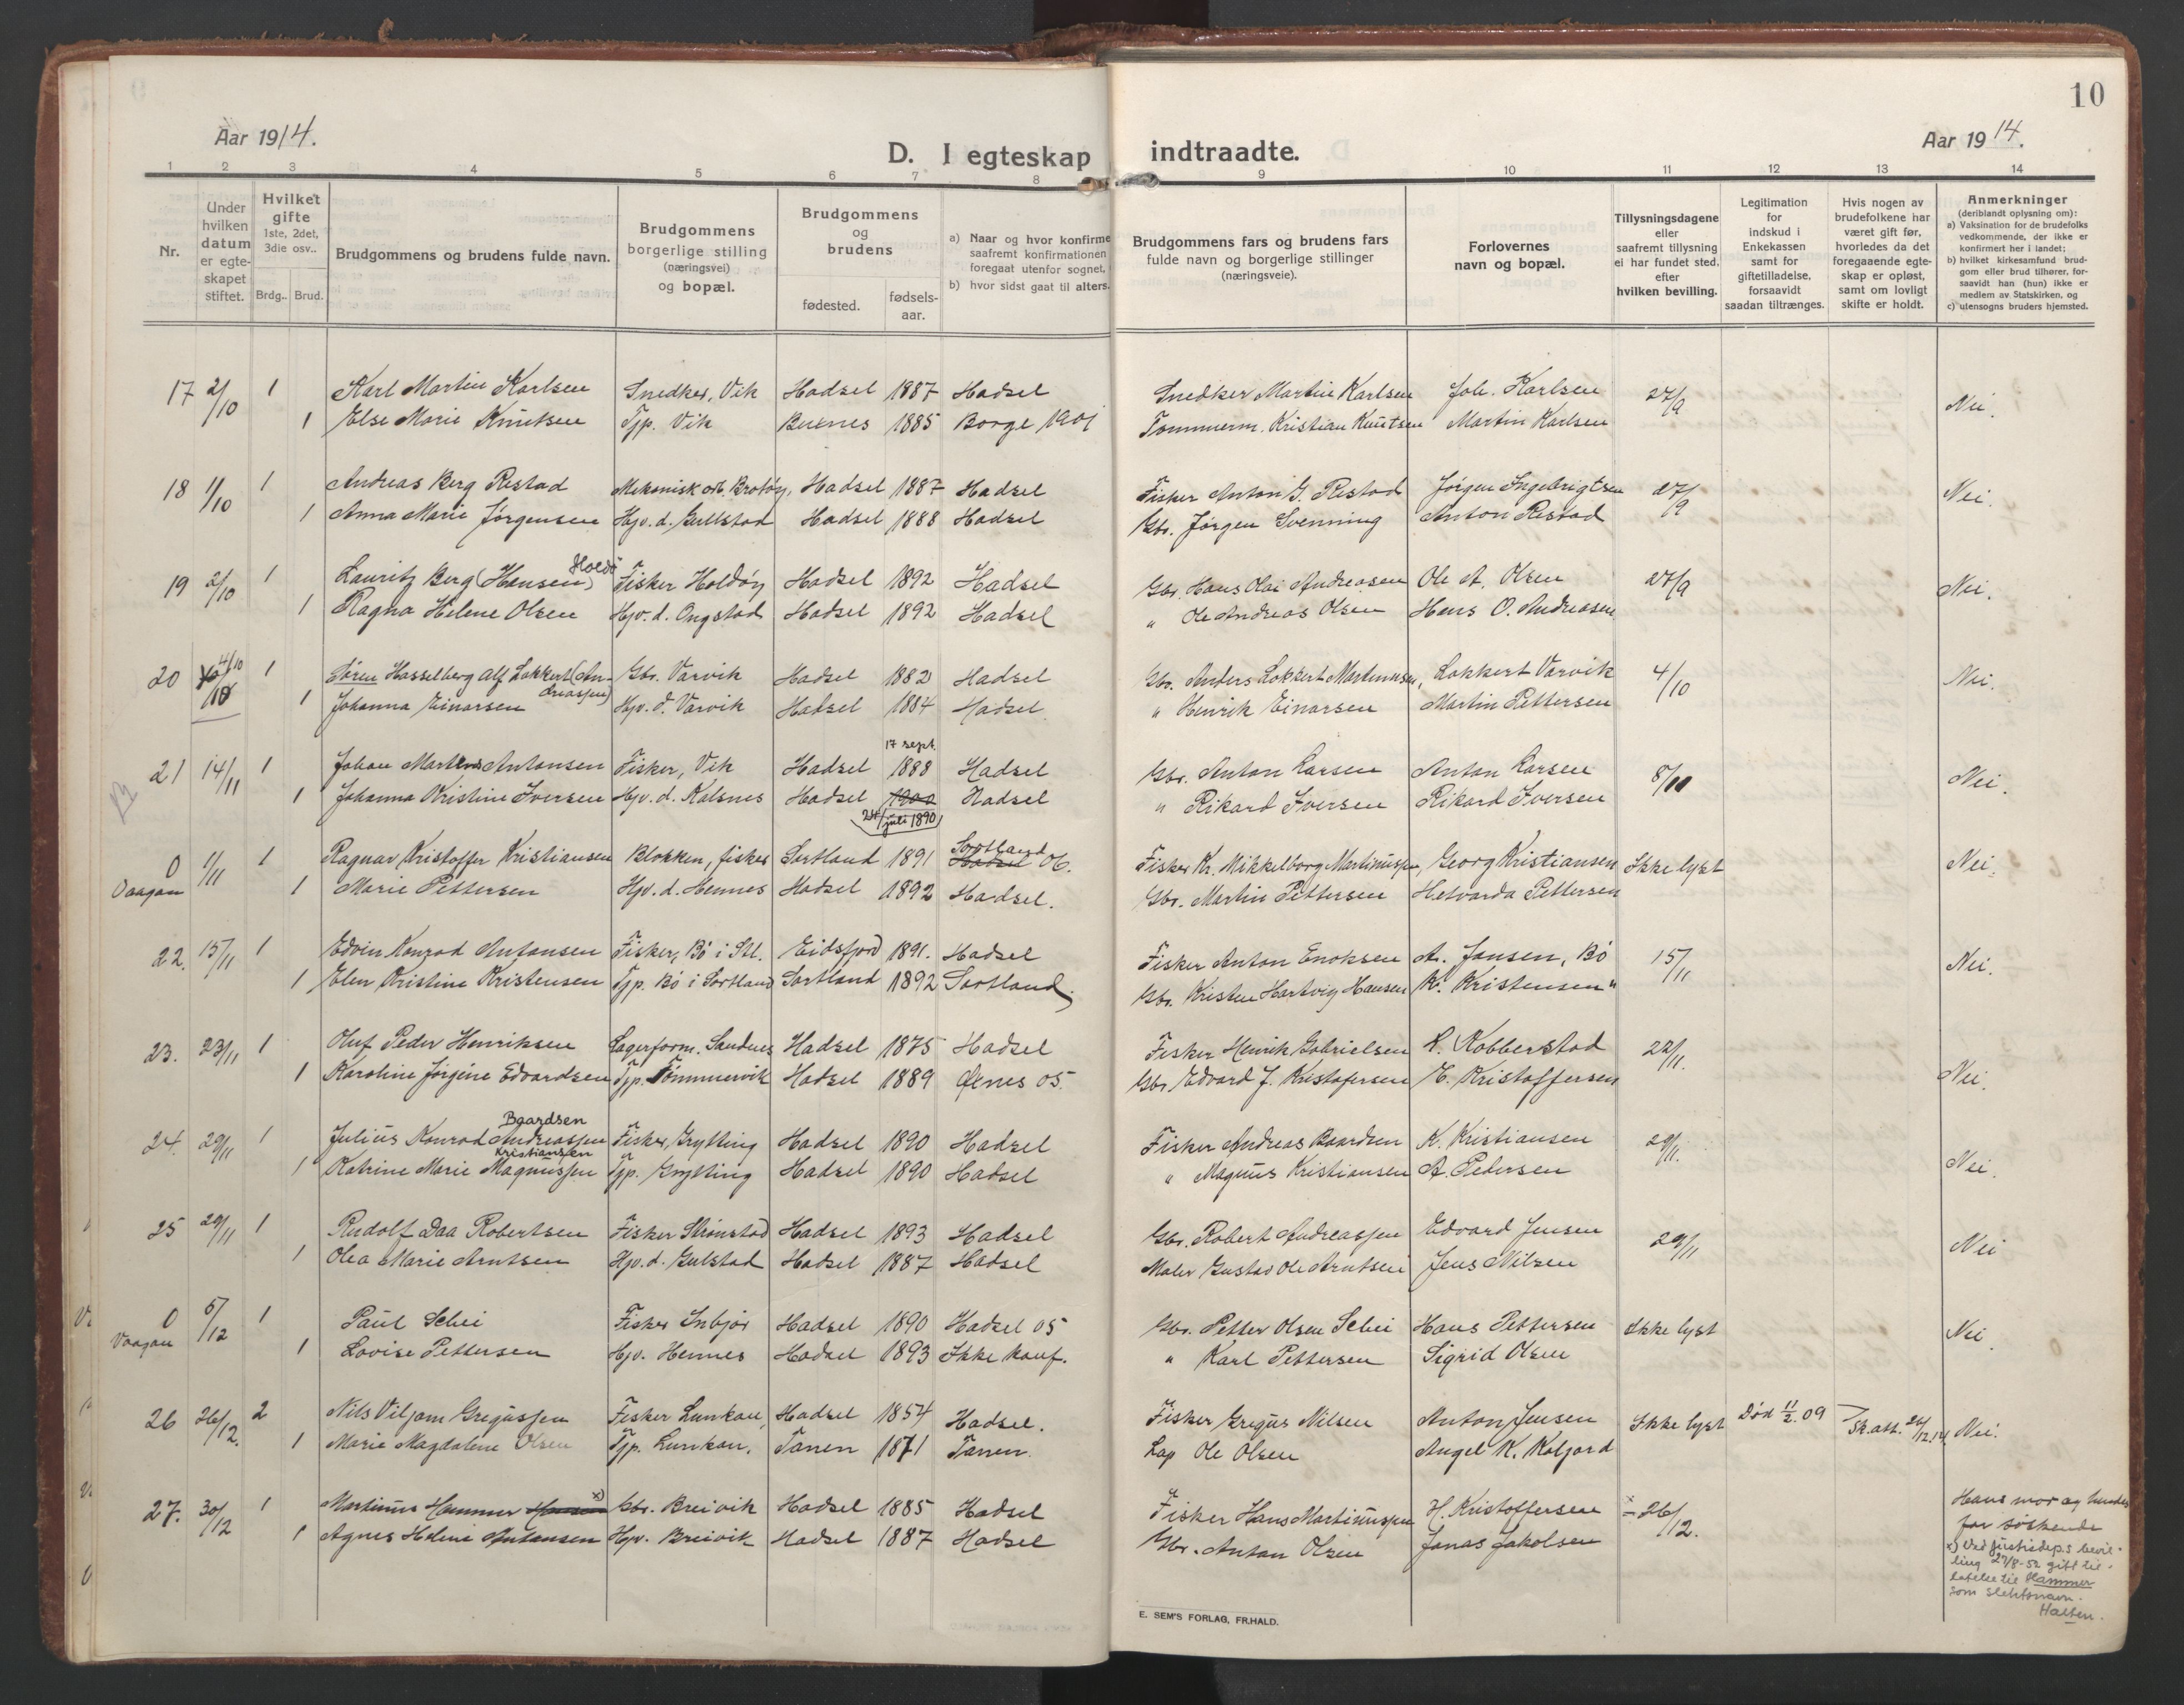 10
Aar 1914.
Aar 1914.
D. I egteskap indtraadte.
1 2 3 4 5 6 7 8 9 10 11 12 13 14
Nr.
Under hvilken datum er egte-skapet stiftet.
Hvilket gifte 1ste, 2det, 3die osv..
Brdg.. Brud.
Brudgommens og brudens fulde navn.
Brudgommens borgerlige stilling (næringsvei) og bopæl.
Brudgommens og brudens
fødested.
fødsels-aar.
a) Naar og hvor konfirme
saafremt konfirmationen
foregaat utenfor sognet,
b) hvor sidst gaat til alters.
Brudgommens fars og brudens fars fulde navn og borgerlige stillinger (næringsveie).
Forlovernes navn og bopæl.
Tillysningsdagene eller saafremt tillysning ei har fundet sted, efter hvilken bevilling.
Legitimation for indskud i Enkekassen samt for giftetilladelse, forsaavidt saadan tiltrænges.
Hvis nogen av brudefolkene har været gift før, hvorledes da det foregaaende egte-skap er opløst, samt om lovligt skifte er holdt.
Anmerkninger
(deriblandt oplysning om):
a) Vaksination for de brudefolks vedkommende, der ikke er konfirmert her i landet;
b) hvilket kirkesamfund brud-gom eller brud tilhører, for-saavidt han (hun) ikke er medlem av Statskirken, og
c) utensogns bruders hjemsted.
17 2/10 1 Karl Martin Karlsen Snedker, Vik Hadsel 1887 Hadsel Snedker Martin Karlsen Joh. Karlsen 27/9 Nei.
1 Else Marie Knutsen Tjp. Vik Buknes 1885 Borge 1901 Tømmerm. Kristian Knutsen Martin Karlsen
18 1/10 1 Andreas Berg Restad Mekanisk arb. Brotøy, Hadsel 1887 Hadsel Fisker Anton G. Restad Jørgen Ingebrigtsen 27/9 Nei.
1 Anna Marie Jørgensen Hjv. d. Gullstad Hadsel 1888 Hadsel Gbr. Jørgen Svenning Anton Restad
Holdö
19 2/10 1 Lauritz Berg (Hansen) Fisker Holdöy Hadsel 1892 Hadsel Gbr. Hans Olai Andreasen Ole A. Olsen 27/9 Nei.
1 Ragna Helene Olsen Hjv. d. Ongstad Hadsel 1892 Hadsel " Ole Andreas Olsen Hans O. Andreasen
20 4/10 1 Søren Hasselberg Alf Lokkert (An-dreassen) Gbr. Varvik Hadsel 1882 Hadsel Gbr. Anders Lokkert Martinussen, Lokkert Varvik 4/10 Nei.
1 Johanna Einarsen Hjv. d. Varvik Hadsel 1884 Hadsel. " Henrik Einarsen Martin Pettersen
17 sept.
21 14/11 1 Johan Martens Antonsen Fisker, Vik Hadsel 1888 Hadsel Gbr. Anton Larsen Anton Larsen 8/11 Nei.
1 Johanna Kristine Iversen Hjv. d. Kalsnes Hadsel 1900 Hadsel " Rikard Iversen Rikard Iversen
24/juli 1890
0 1/11 1 Ragnar Kristoffer Kristiansen Blokken, fisker Sortland 1891 Sortland Hadsel 06. Fisker Kr. Mikkelborg Martinussen, Georg Kristiansen Ikke lyst Nei.
Vaagan 1 Marie Pettersen Hjv. d. Hennes Hadsel 1892 Hadsel. Gbr. Martin Pettersen Hetvarda Pettersen
22. 15/11 1 Edvin Konrad Antonsen Fisker, Bö i Stl. Eidsfjord 1891. Hadsel Fisker Anton Enoksen A. Jansen, Bö 15/11 Nei.
1 Elen Kristine Kristensen Tjp. Bö i Sortland Sortland 1892 Sortland. Gbr. Kristen Hartvig Hansen K. Kristensen "
23. 23/11 1 Oluf Peder Henriksen Lagerform. Sandnes Hadsel 1875 Hadsel Fisker Henrik Gabrielsen R. Kobberstad 22/11. Nei.
1 Karoline Jørgine Edvardsen Tjp. Tømmervik Hadsel 1889 Øxnes 05. Gbr. Edvard J. Kristofersen E. Kristoffersen
Baardsen
24. 29/11 1 Julius Konrad Andreassen Fisker, Grytting Hadsel 1890 Hadsel Fisker Andreas Baardsen K. Kristiansen 29/11. Nei.
Kristiansen
1 Katrine Marie Magnussen Tjp. Grytting Hadsel 1890 Hadsel " Magnus Kristiansen A. Pedersen
25 29/11 1 Rudolf Daa Robertsen Fisker Strønstad Hadsel 1893 Hadsel Gbr. Robert Andreassen Edvard Jensen 29/11 Nei
1 Olea Marie Arntsen Hjv. d. Gulstad Hadsel 1887 Hadsel Maler Gustav Ole Arntsen Jens Nilsen
0 5/12 1 Paul Schei Fisker Inbjör Hadsel 1890 Hadsel 05 Gbr. Petter Olsen Schei Hans Pettersen Ikke lyst Nei.
Vaagan 1 Lovise Pettersen Hjv. Hennes Hadsel 1893 Ikke konf. " Karl Pettersen Sigrid Olsen
26 26/12. 2 Nils Viljam Gregussen Fisker Lunkan, Hadsel 1854 Hadsel. Fisker Gregus Nilsen Anton Jensen Ikke lyst Död 11/2. 09 Sk.att. 26/12.14 Nei.
1 Marie Magdalene Olsen Tjp. Lunkan, Tanen 1871 Tanen. Lap Ole Olsen Angel K. Kaljord
27. 30/12 1 Martinus Hammer Hansen x) Gbr. Breivik Hadsel 1885 Hadsel Fisker Hans Martinussen H. Kristoffersen 26/12.
1 Agnes Helene Antonsen Hjv. Breivik Hadsel 1887 Hadsel Gbr. Anton Olsen Jonas Jakobsen
Hans mor og hendes
far söskende
x) Ved justisdep.s bevil-
ling 27/8-52 gitt til-
latelse til Hammer
som slektsnavn.
Halten.
E. SEM'S FORLAG, FR.HALD.